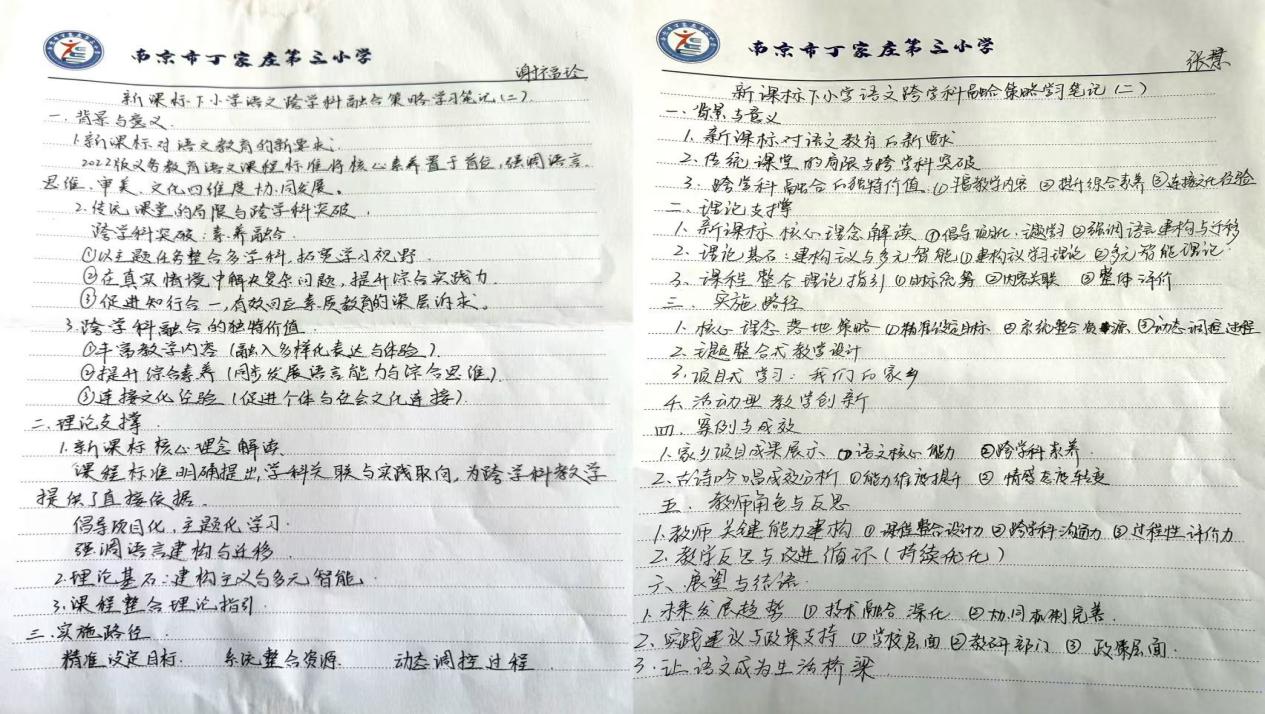 南京市丁家庄第三小学
新课标下小学语文跨学科融合策略学习笔记(二)
一.背景与意义.
1.新课标对语文教育的新要求.
2022版义务教育语文课程标准将核心素养置于首位,强调语言、
思维、审美、文化四维度协同发展。
2.传统课堂的局限与跨学科突破.
跨学科突破:素养融合.
①以主题任务整合多学科,拓宽学习视野.
②在真实情境中解决复杂问题,提升综合实践力.
③促进知行合一,有效回应素质教育的深层诉求。
3.跨学科融合的独特价值.
①丰富教学内容(融入多样化表达与体验).
②提升综合素养(同步发展语言能力与综合思维).
③连接文化经验(促进个体与社会文化连接).
二.理论支撑.
1.新课标核心理念解读.
课程标准明确提出,学科关联与实践取向,为跨学科教学
提供了直接依据.
倡导项目化,主题化学习.
强调语言建构与迁移.
2.理论基石:建构主义与多元智能.
3.课程整合理论指引.
三.实施路径.
精准设定目标. 系统整合资源. 动态调控过程.
南京市丁家庄第三小学
张慧
新课标下小学语文跨学科融合策略学习笔记(二)
一.背景与意义
1.新课标对语文教育的新要求
2.传统课堂的局限与跨学科突破
3.跨学科融合的独特价值.①丰富教学内容 ②提升综合素养 ③连接文化经验
二.理论支撑
1.新课标核心理念解读 ①倡导项目化、主题学习 ②强调语言建构与迁移
2.理论基石:建构主义与多元智能 ①建构主义学习理论 ②多元智能理论
3.课程整合理论指引 ①目标统筹 ②内容关联 ③整体评价
三.实施路径
1.核心理念落地策略 ①精准设定目标 ②系统整合资源 ③动态调控过程
2.主题整合式教学设计
3.项目式学习:我们的家乡
4.活动型教学创新
四.案例与成效
1.家乡项目成果展示 ①语文核心能力 ②跨学科素养.
2.古诗吟唱成效分析 ①能力维度提升 ②情感态度转变
五.教师角色与反思
1.教师关键能力建构 ①课程整合设计力 ②跨学科沟通力 ③过程性评价力
2.教学反思与改进循环(持续优化)
六.展望与结语.
1.未来发展趋势 ①技术融合深化 ②协同机制完善.
2.实践建议与政策支持 ①学校层面 ②教研部门 ③政策层面.
3.让语文成为生活桥梁.